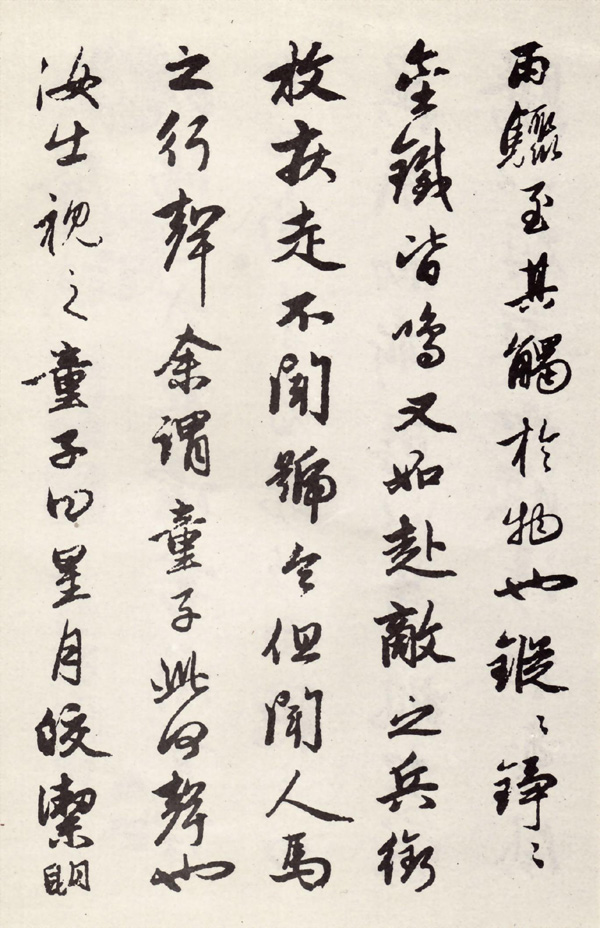 雨驟至其觸於物也鏦〻錚〻
金鐵皆鳴又如赴敵之兵銜
枚疾走不聞號令但聞人馬
之行聲余謂童子此何聲也
汝出視之童子曰星月皎潔明